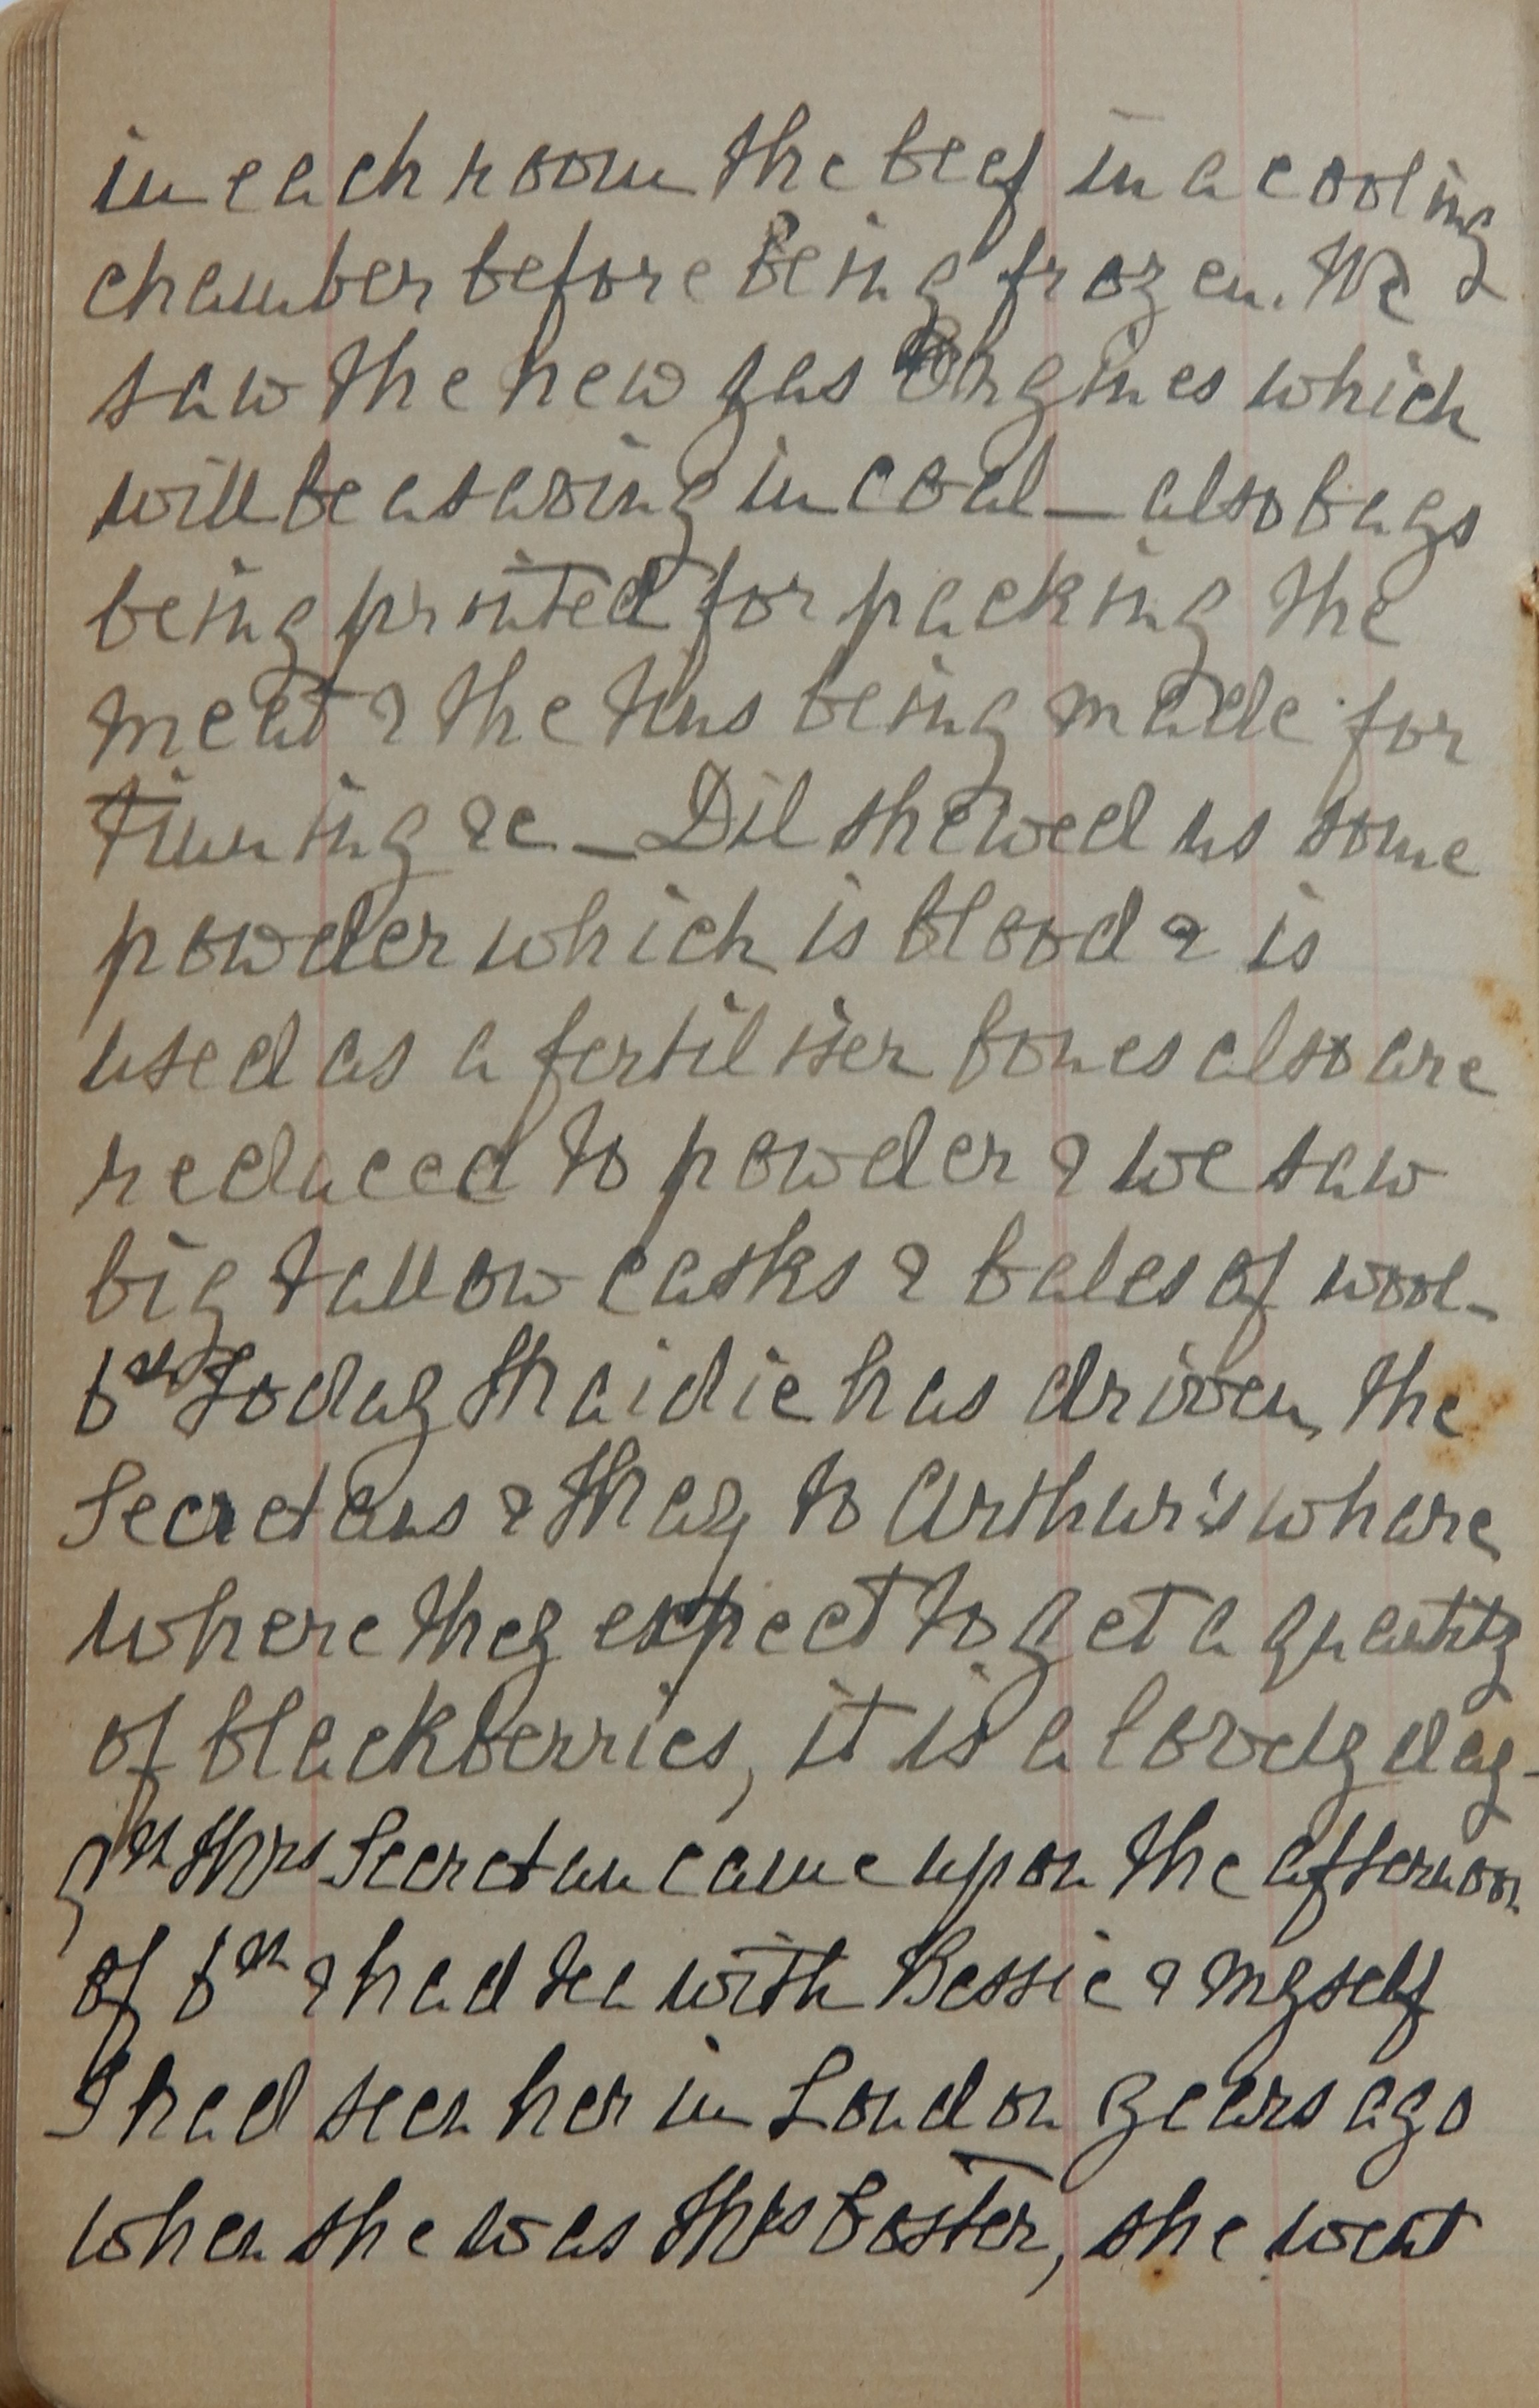 in each room the beef in a cooling
chamber before being frozen. We
saw the new gas Engines which
will be a saving in coal _ also bags
being printed for packing the
meat & the tins being made for
tinning &c _ Dil shewed us some
powder which is blood & is
used as a fertiliser bones also are
reduced to powder & we saw
big tallow casks & bales of wool _
6th Today Maidie has driven the
Secretans & May to Arthur's whare
where they expect to get a quantity
of blackberries, it is a lovely day _
9th Mrs Secretan came up on the afternoon
of 6th & had tea with Bessie & myself
I had seen her in London years ago
when she was Mrs Foster, she went